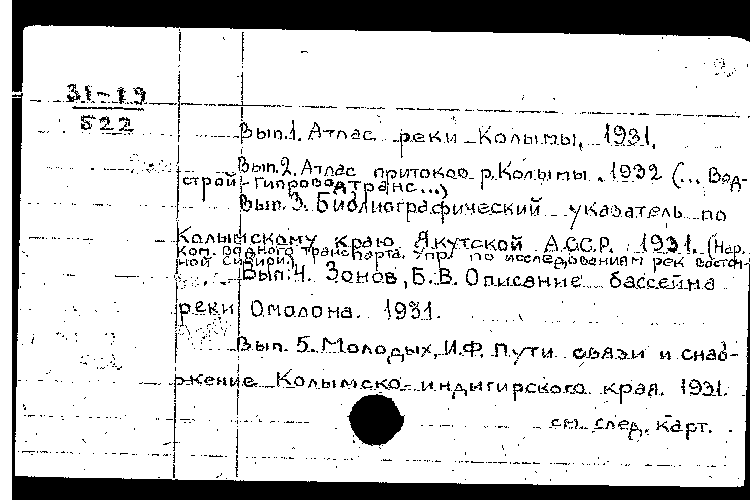 31-19
522
Вып.1. Атлас реки Колымы, 1931.
Вып.2. Атлас притоков р. Колымы. 1932 (... Вод-
строй-Гипроводтранс...)
Вып. 3. Библиографический указатель по
Колымскому краю Якутской А.С.С.Р. 1931. (Нар.
Ком. водного транспорта. Упр. по исследованиям рек восточ-
ной Сибири.)
Вып. 4. Зонов, Б.В. Описание бассейна
реки Омолона. 1931.
Вып. 5. Молодых, И.Ф. Пути связи и снаб-
жение Колымско-индигирского края. 1931.
см. след. карт.